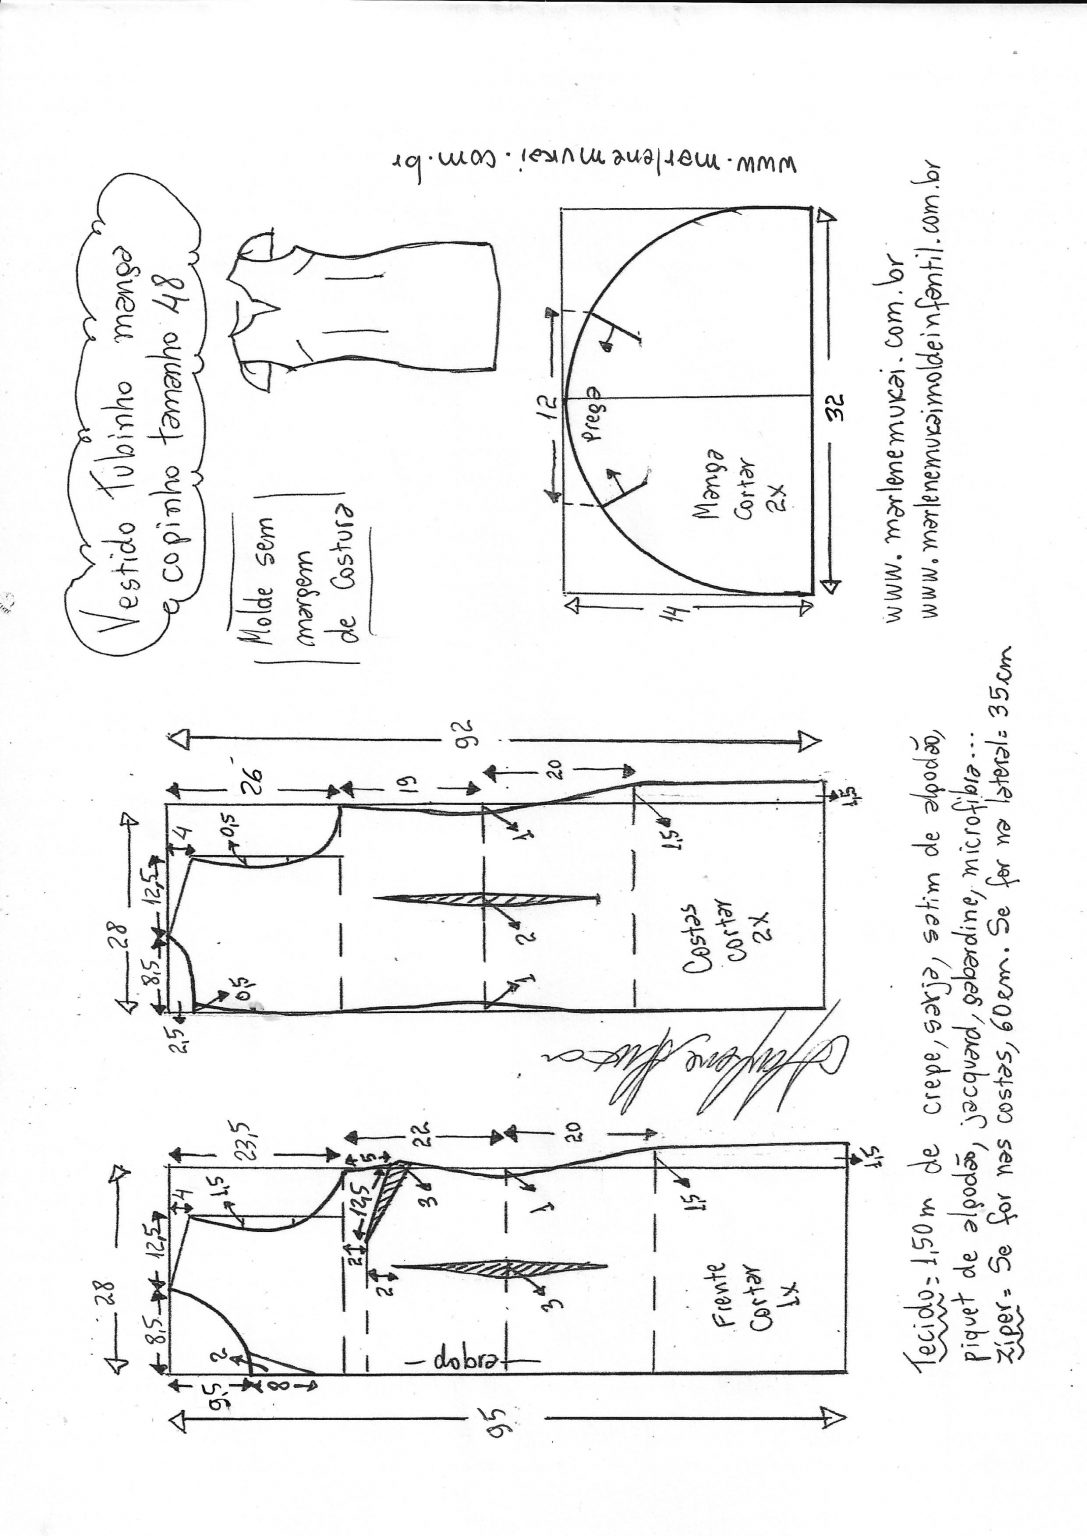 Vestido Tubinho manga
copinho tamanho 48
Molde sem
margem
de Costura
www.marlenemukai.com.br
28
8,5
12,5
4
1,5
23,5
9,5
2
8
5
12,5
3
2
2
22
20
1
3
1,5
1,5
dobra
Frente
Cortar
1x
95
28
8,5
12,5
4
0,5
26
2,5
0,5
19
20
1
2
1
1,5
1,5
Costas
Cortar
2x
92
12
Prega
Manga
Cortar
2x
14
32
www.marlenemukai.com.br
www.marlenemukaimoldeinfantil.com.br
Tecido = 1,50m de crepe, sarja, satim de algodão,
piquet de algodão, jacquard, gabardine, microfibra...
Ziper = Se for nas costas, 60cm. Se for na lateral = 35cm